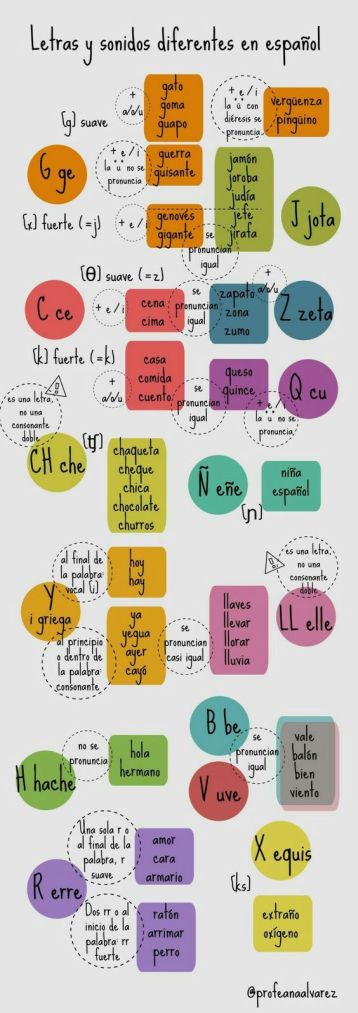 Letras y sonidos diferentes en español
[g] suave
+
a/o/u
gato
goma
guapo
+ e / i
la ü con
diéresis se
pronuncia
vergüenza
pingüino
G ge
+ e / i
la u no se
pronuncia
guerra
guisante
[x] fuerte (=j)
+ e / i
genovés
gigante
se
pronuncian
igual
jamón
joroba
judía
jefe
jirafa
J jota
[θ] suave (=z)
C ce
+ e / i
cena
cima
se
pronuncian
igual
zapato
zona
zumo
+
a/o/u
Z zeta
[k] fuerte (=k)
+
a/o/u
casa
comida
cuento
se
pronuncian
igual
queso
quince
+ e / i
la u no se
pronuncia
Q cu
es una letra,
no una
consonante
doble
CH che
[ʧ]
chaqueta
cheque
chica
chocolate
churros
Ñ eñe
[ɲ]
niña
español
Y
i griega
al final de
la palabra:
vocal (i)
hoy
hay
al principio
o dentro de
la palabra:
consonante
ya
yegua
ayer
cayó
se
pronuncian
casi igual
llaves
llevar
llorar
lluvia
es una letra,
no una
consonante
doble
LL elle
H hache
no se
pronuncia
hola
hermano
B be
V uve
se
pronuncian
igual
vale
balón
bien
viento
R erre
Una sola r o
al final de la
palabra, r
suave
amor
cara
armario
Dos rr o al
inicio de la
palabra: rr
fuerte
ratón
arrimar
perro
X equis
[ks]
extraño
oxígeno
@profeanaalvarez